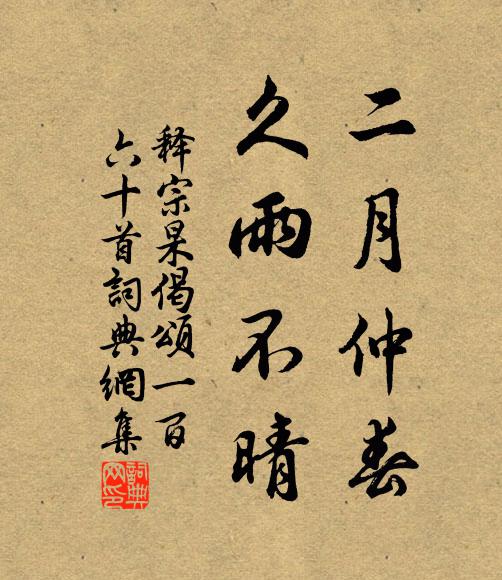 二月仲春
久雨不晴
释宗杲偈頌一百
六十首詞典網集
詞典
网印